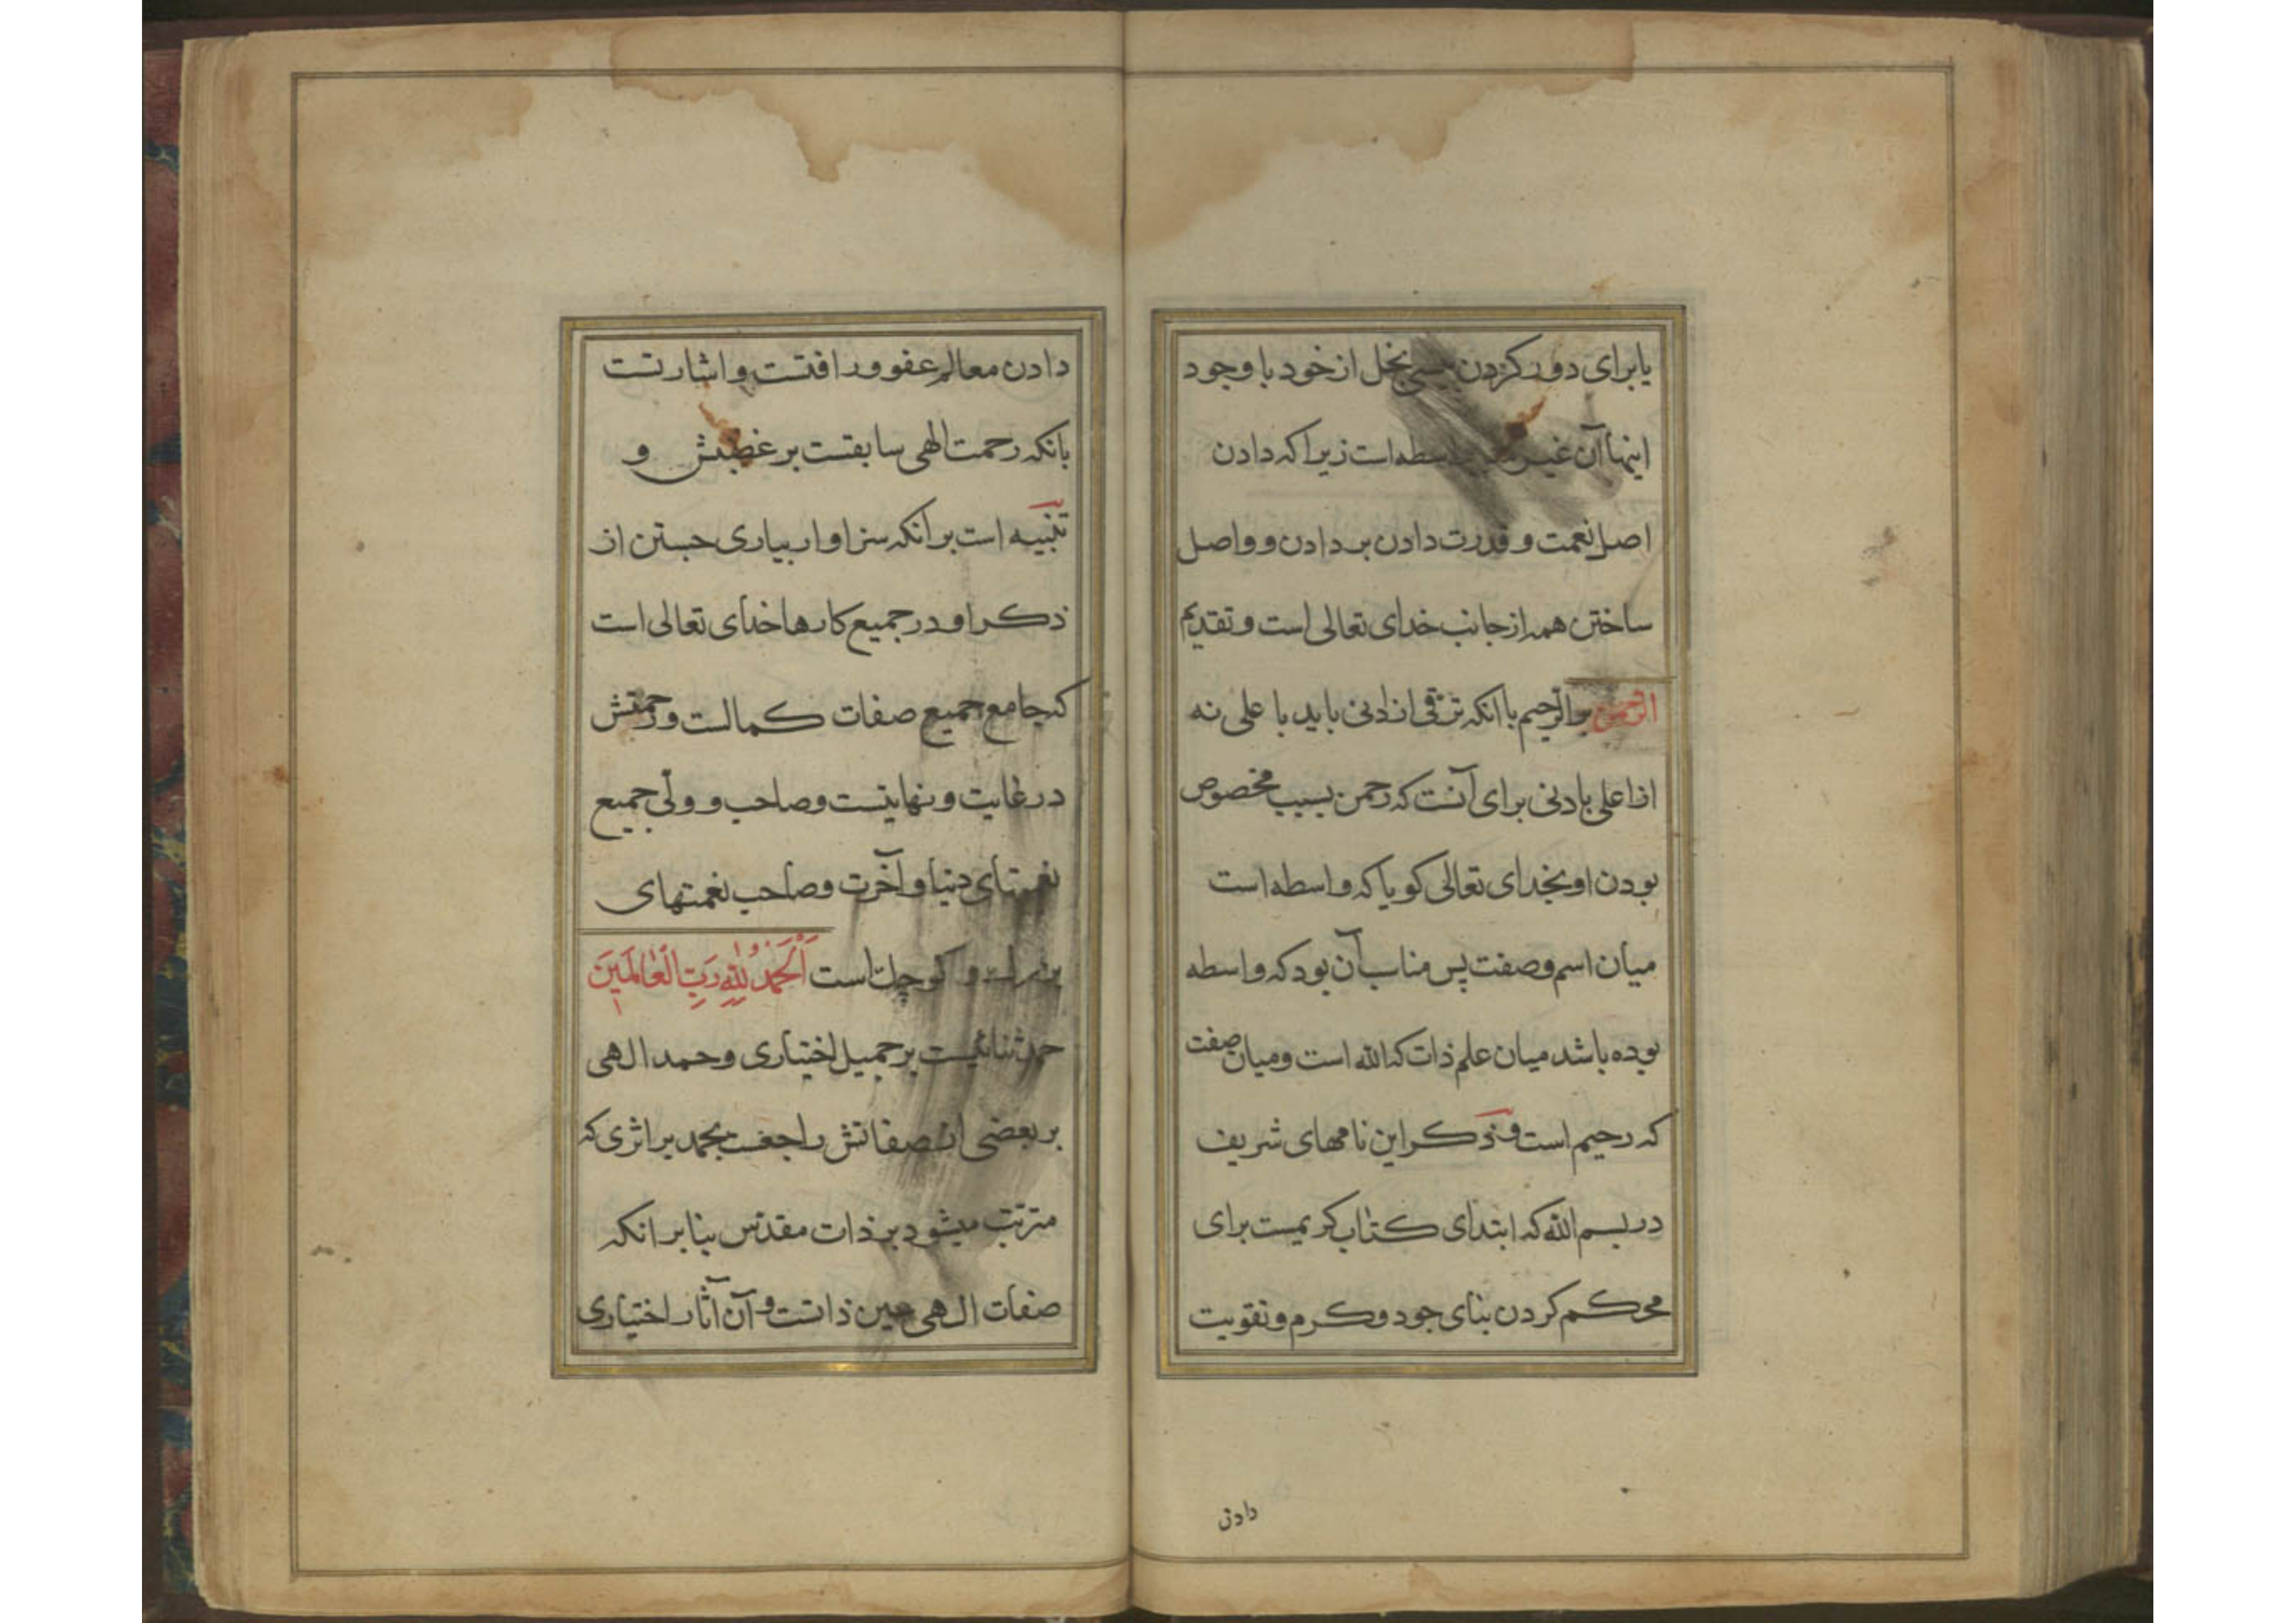 یا برای دور کردن بخل از خود با وجود
اینها آن غیر واسطه است زیرا که دادن
اصل نعمت و قدرت دادن بر دادن و واصل
ساختن همه از جانب خدای تعالی است و تقدیم
الرحمن بر الرحیم با آنکه ترقی از ادنی باید با علی نه
از اعلی بادنی برای آنست که رحمن بسبب مخصوص
بودن او بخدای تعالی کویا که واسطه است
میان اسم وصفت پس مناسب آن بود که واسطه
بوده باشد میان علم ذات که الله است و میان صفت
که رحیم است و ذکر این نامهای شریف
در بسم الله که ابتدای کتاب کریمست برای
محکم کردن بنای جود و کرم و تقویت
دادن
دادن معالم عفو و رافتست و اشارتست
بانکه رحمت الهی سابقست بر غضبش و
تنبیه است بر آنکه سزاوار بیاری جستن از
ذکر او در جمیع کارها خدای تعالی است
که جامع جمیع صفات کمالست و رحمتش
در غایت و نهایتست و صاحب و ولی جمیع
نعمتهای دنیا و آخرت و صاحب نعمتهای
بزرك و کوچك است اَلْحَمْدُ لِلّٰهِ رَبِّ الْعٰالَمینَ
حمد ثنائیست بر جمیل اختیاری و حمد الهی
بر بعضی از صفاتش راجعست بحمد بر اثری که
مترتب میشود بر ذات مقدس بنابر آنکه
صفات الهی عین ذاتست و آن آثار اختیاری